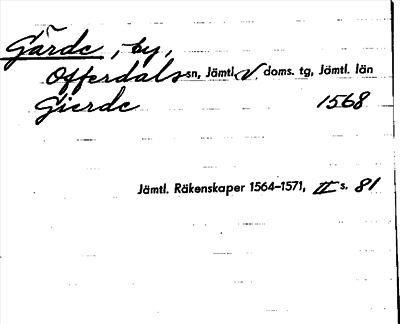 Gärde, by,
Offerdals sn, Jämtl. V. doms. tg, Jämtl. län
Gierde 1568
Jämtl. Räkenskaper 1564–1571, II s. 81